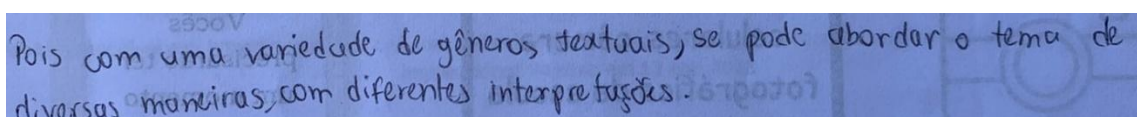 Pois com uma variedade de gêneros textuais, se pode abordar o tema de
diversas maneiras, com diferentes interpretações.